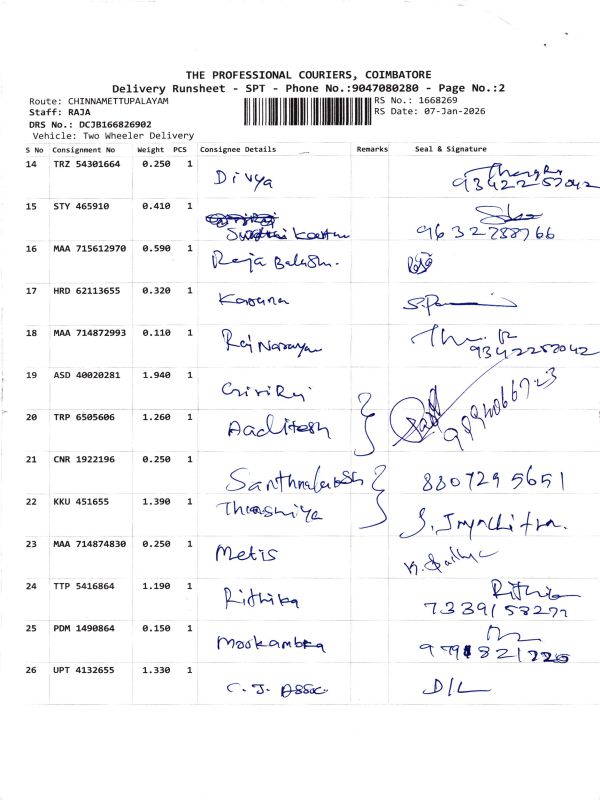 THE PROFESSIONAL COURIERS, COIMBATORE
Delivery Runsheet - SPT - Phone No.:9047080280 - Page No.:2
Route: CHINNAMETTUPALAYAM RS No.: 1668269
Staff: RAJA RS Date: 07-Jan-2026
DRS No.: DCJB166826902
Vehicle: Two Wheeler Delivery
S No Consignment No Weight PCS Consignee Details Remarks Seal & Signature
14 TRZ 54301664 0.250 1 Divya 9342252042
15 STY 465910 0.410 1 9632788766
16 MAA 715612970 0.590 1 Raja
17 HRD 62113655 0.320 1
18 MAA 714872993 0.110 1 Raj Narayan 9342252042
19 ASD 40020281 1.940 1
20 TRP 6505606 1.260 1 Aaditesh
21 CNR 1922196 0.250 1 8807295651
22 KKU 451655 1.390 1
23 MAA 714874830 0.250 1 Metis
24 TTP 5416864 1.190 1 Rithika
25 PDM 1490864 0.150 1 Mookambka
26 UPT 4132655 1.330 1 C.J. Assoc. D/L